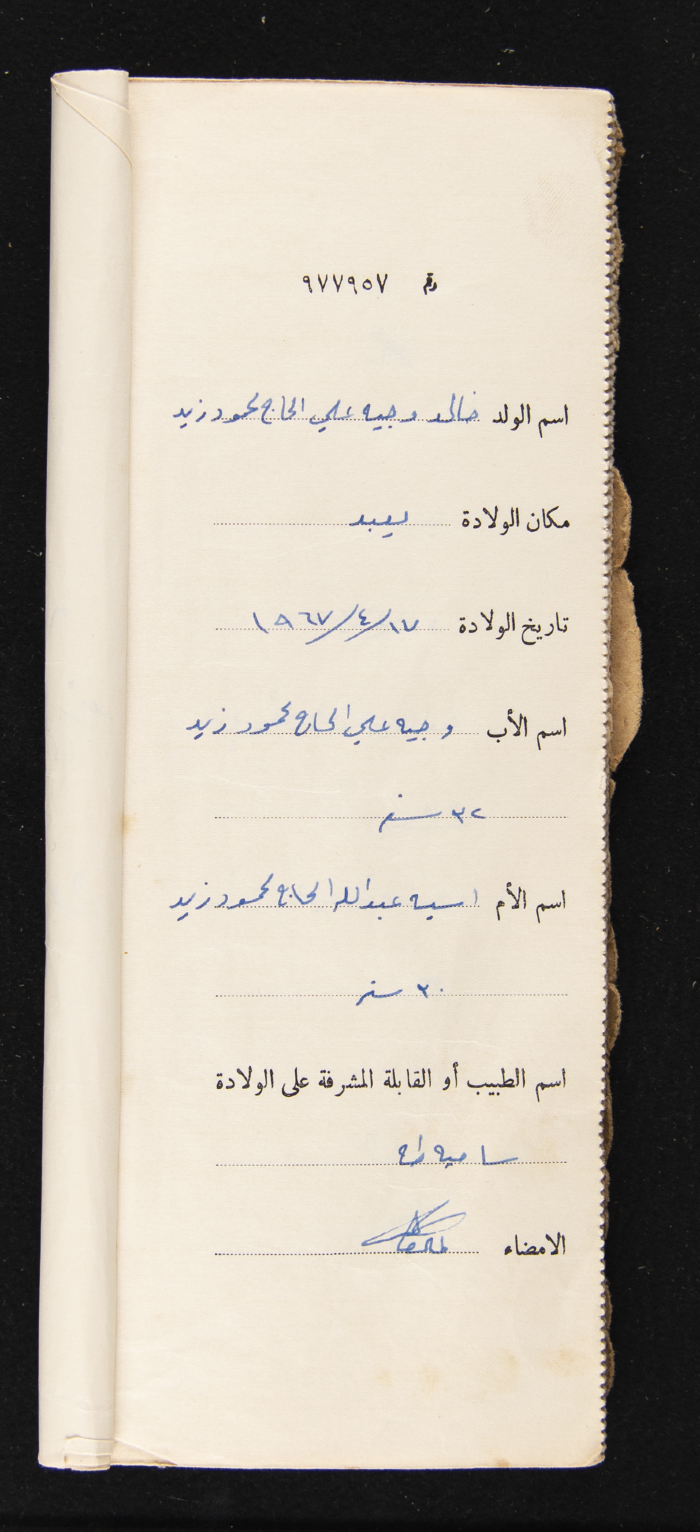 رقم ٩٧٧٩٥٧
اسم الولد خالد وجيه علي الحاج محمود زيد
مكان الولادة يعبد
تاريخ الولادة ١٧/٤/١٩٦٧
اسم الأب وجيه علي الحاج محمود زيد
٣٢ سنه
اسم الأم اسيه عبدالله الحاج محمود زيد
٣٠ سنه
اسم الطبيب أو القابلة المشرفة على الولادة
ساميه طه
الامضاء